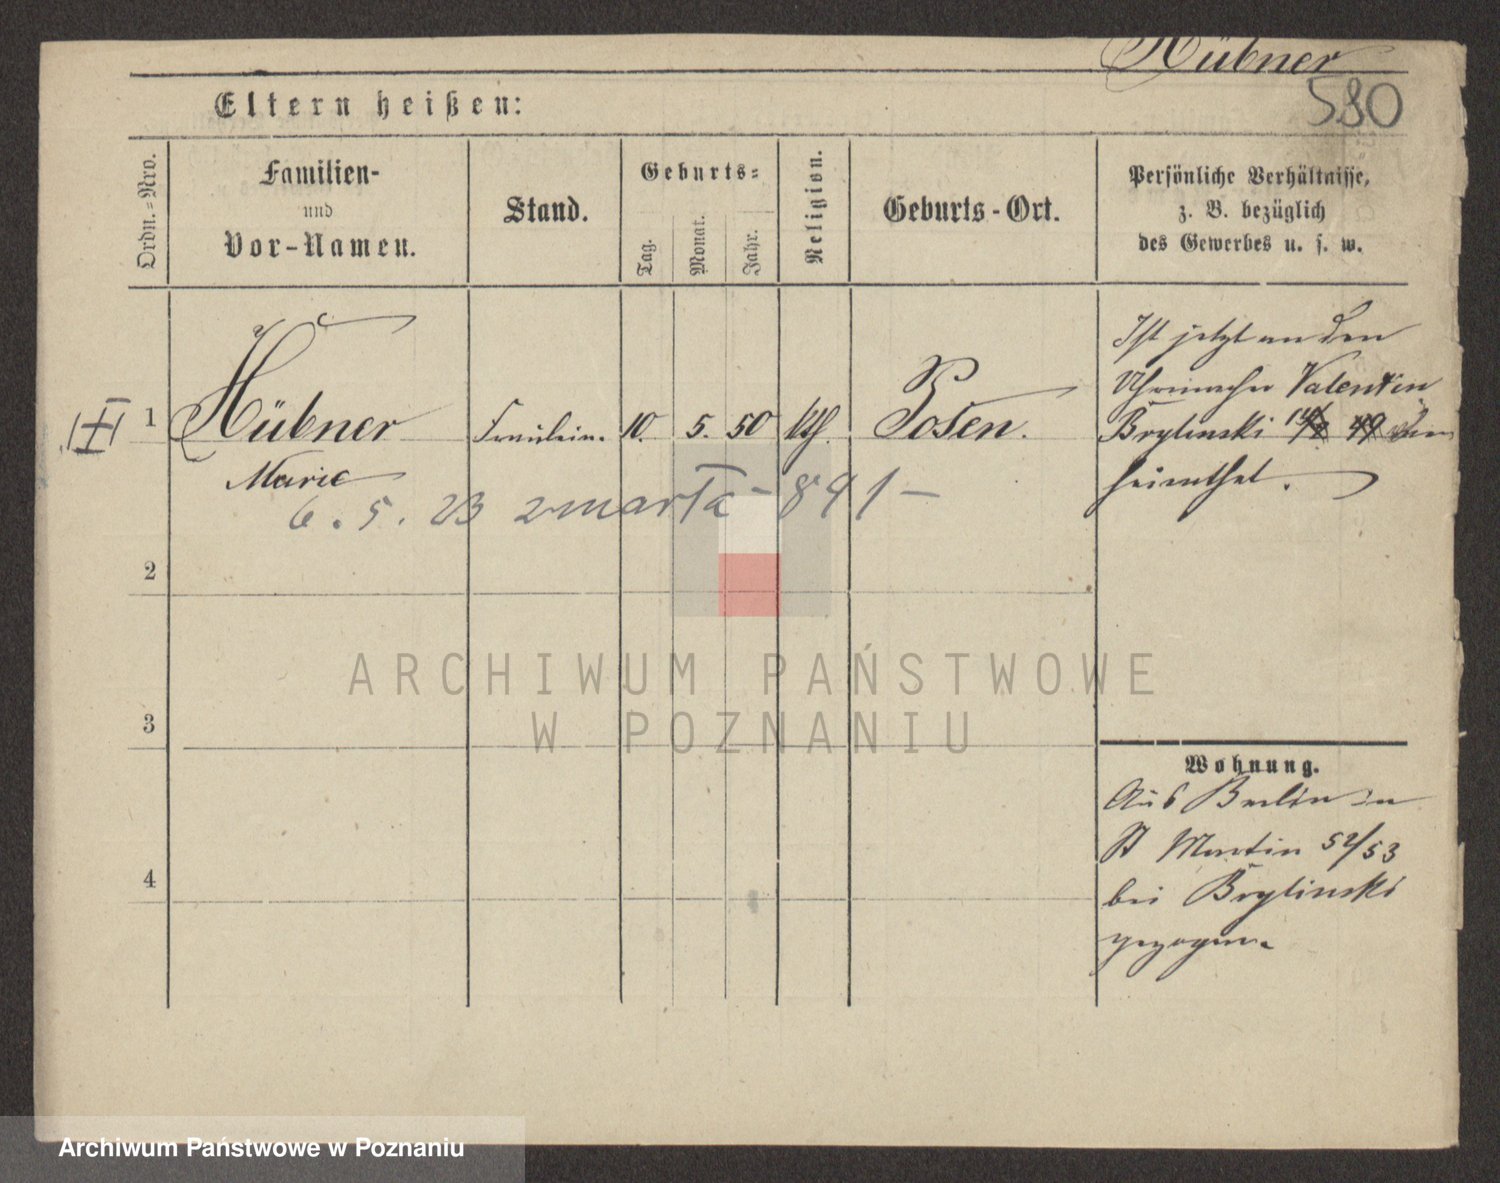 Hübner
580
Eltern heißen:
Ordn.-Nro.
Familien-
und
Vor-Namen.
Stand.
Geburts-
Tag.
Monat.
Jahr.
Religion.
Geburts-Ort.
Persönliche Verhältnisse,
z. B. bezüglich
des Gewerbes u. s. w.
III 1 Hübner Fräulein. 10. 5. 50 kth. Posen.
Marie
6. 5. 23 zmarła - 891 -
Ist jetzt an den
Uhrmacher Valentin
Brylinski
heirathet.
2
3
4
Wohnung.
Aus Berlin in
St Martin 52/53
bei Brylinski
gezogen.
ARCHIWUM PAŃSTWOWE
W POZNANIU
Archiwum Państwowe w Poznaniu